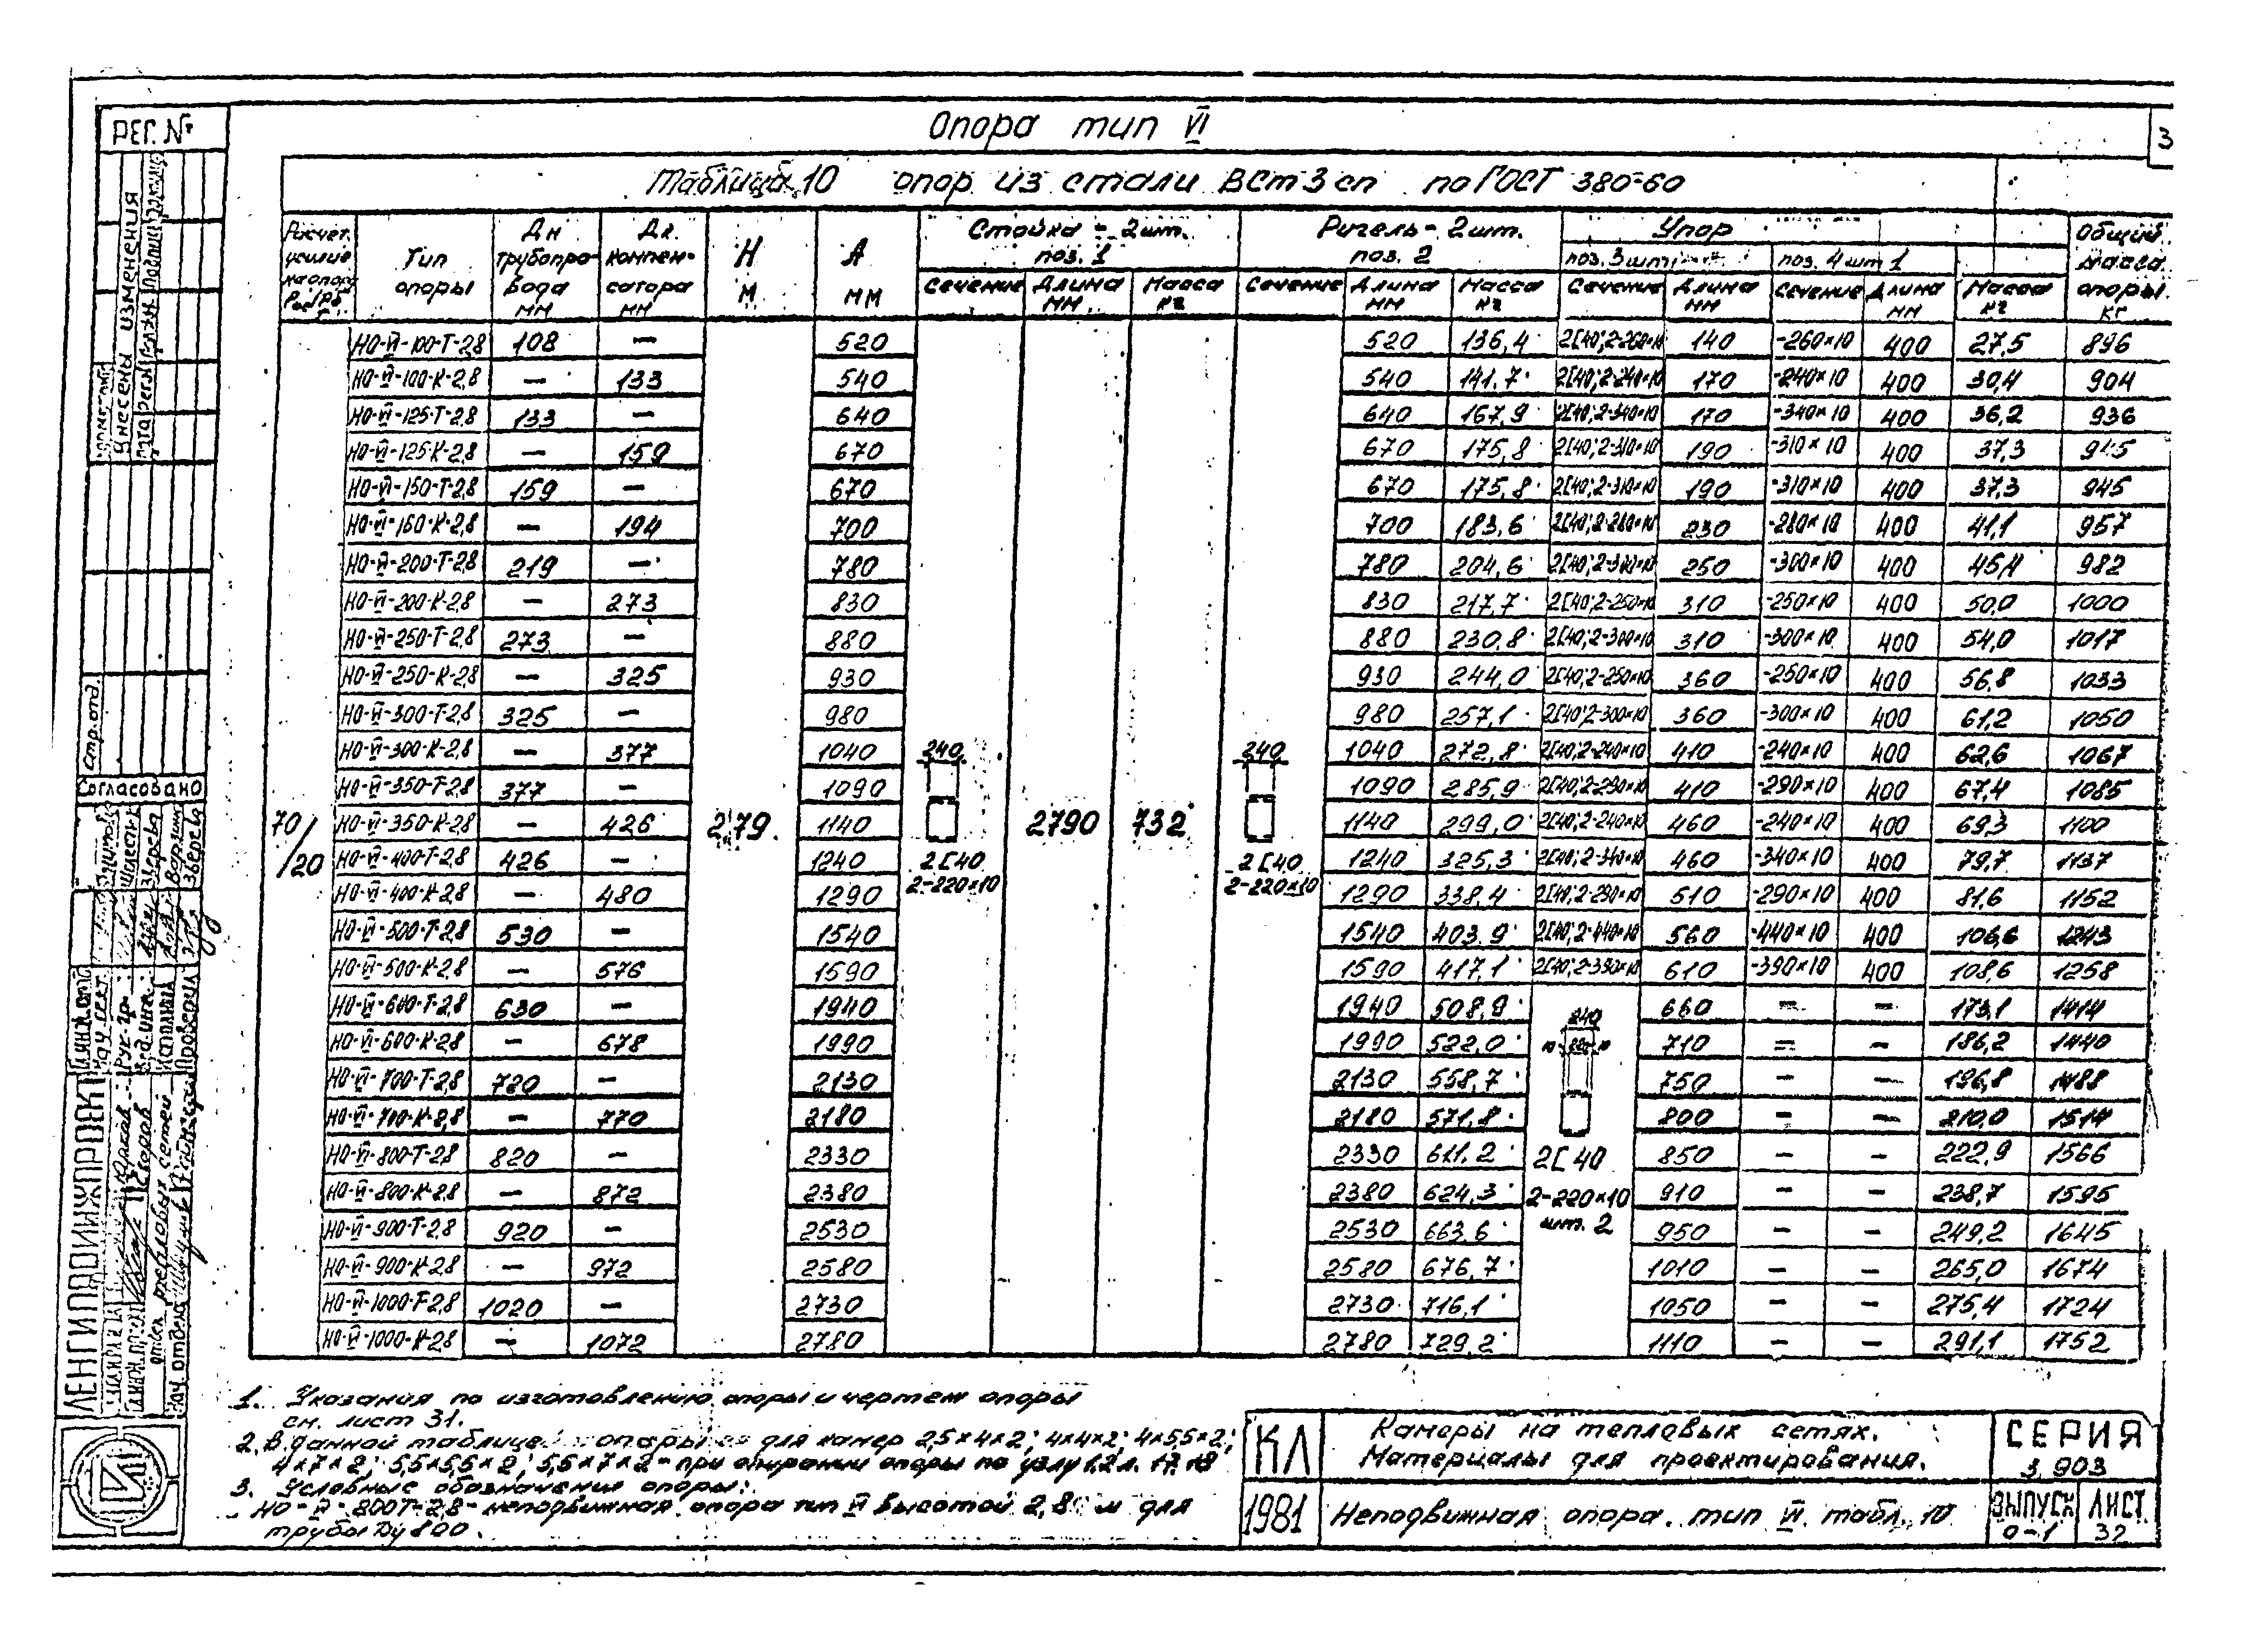 Опора тип VI
3
РЕГ. №
Таблица 10 опор из стали ВСт3сп по ГОСТ 380-60
Расчет. усилие на опору
Тип опоры
Дн трубопровода мм
Дк. компенсатора мм
Н м
А мм
Стойка - 2шт. поз. 1
Ригель - 2шт. поз. 2
Упор
поз. 3 шт.
поз. 4 шт 1
Общий масса опоры. кг
Сечение Длина мм Масса кг Сечение Длина мм Масса кг Сечение Длина мм Сечение Длина мм Масса кг
НО-VI-100-Т-2,8 108 — 520 520 136,4 2[40;2-260×10 140 -260×10 400 27,5 896
НО-VI-100-К-2,8 — 133 540 540 141,7 2[40;2-240×10 170 -240×10 400 30,4 904
НО-VI-125-Т-2,8 133 — 640 640 167,9 2[40;2-340×10 170 -340×10 400 36,2 936
НО-VI-125-К-2,8 — 159 670 670 175,8 2[40;2-310×10 190 -310×10 400 37,3 945
НО-VI-150-Т-2,8 159 — 670 670 175,8 2[40;2-310×10 190 -310×10 400 37,3 945
НО-VI-150-К-2,8 — 194 700 700 183,6 2[40;2-280×10 230 -280×10 400 41,1 957
НО-VI-200-Т-2,8 219 — 780 780 204,6 2[40;2-300×10 250 -300×10 400 45,4 982
НО-VI-200-К-2,8 — 273 830 830 217,7 2[40;2-250×10 310 -250×10 400 50,0 1000
НО-VI-250-Т-2,8 273 — 880 880 230,8 2[40;2-300×10 310 -300×10 400 54,0 1017
НО-VI-250-К-2,8 — 325 930 930 244,0 2[40;2-250×10 360 -250×10 400 56,8 1033
НО-VI-300-Т-2,8 325 — 980 980 257,1 2[40;2-300×10 360 -300×10 400 61,2 1050
НО-VI-300-К-2,8 — 377 1040 1040 272,8 2[40;2-240×10 410 -240×10 400 62,6 1067
НО-VI-350-Т-2,8 377 — 1090 1090 285,9 2[40;2-290×10 410 -290×10 400 67,4 1085
НО-VI-350-К-2,8 — 426 1140 1140 299,0 2[40;2-240×10 460 -240×10 400 69,3 1100
НО-VI-400-Т-2,8 426 — 1240 1240 325,3 2[40;2-340×10 460 -340×10 400 79,7 1137
НО-VI-400-К-2,8 — 480 1290 1290 338,4 2[40;2-290×10 510 -290×10 400 81,6 1152
НО-VI-500-Т-2,8 530 — 1540 1540 403,9 2[40;2-440×10 560 -440×10 400 106,6 1243
НО-VI-500-К-2,8 — 576 1590 1590 417,1 2[40;2-390×10 610 -390×10 400 108,6 1258
НО-VI-600-Т-2,8 630 — 1940 1940 508,9 660 — — 173,1 1414
НО-VI-600-К-2,8 — 678 1990 1990 522,0 710 — — 186,2 1440
НО-VI-700-Т-2,8 720 — 2130 2130 558,7 750 — — 196,8 1488
НО-VI-700-К-2,8 — 770 2180 2180 571,8 800 — — 210,0 1514
НО-VI-800-Т-2,8 820 — 2330 2330 611,2 850 — — 222,9 1566
НО-VI-800-К-2,8 — 872 2380 2380 624,3 910 — — 238,7 1595
НО-VI-900-Т-2,8 920 — 2530 2530 663,6 950 — — 249,2 1645
НО-VI-900-К-2,8 — 972 2580 2580 676,7 1010 — — 265,0 1674
НО-VI-1000-Т-2,8 1020 — 2730 2730 716,1 1050 — — 275,4 1724
НО-VI-1000-К-2,8 — 1072 2780 2780 729,2 1110 — — 291,1 1752
70/20
2,79
240
2[40
2-220×10
2790
732
240
2[40
2-220×10
240
2[40
2-220×10
шт. 2
1. Указания по изготовлению опоры и чертеж опоры
см. лист 31.
2. В данной таблице опоры для камер 2,5×4×2; 4×4×2; 4×5,5×2;
4×7×2; 5,5×5,5×2; 5,5×7×2 - при опирании опоры по узлу 1,2 л. 17, 18
3. Условные обозначения опоры:
НО-VI-800Т-2,8 - неподвижная опора тип VI высотой 2,8 м для
трубы Ду 800.
КЛ
1981
Камеры на тепловых сетях.
Материалы для проектирования.
Неподвижная опора. тип VI табл. 10
СЕРИЯ
3.903
ВЫПУСК
0-1
ЛИСТ
32
Внесены изменения
Стр. отд.
Согласовано
Рук. гр.
Исполнил
Проверил
Зверева
ЛЕНГИПРОИНЖПРОЕКТ